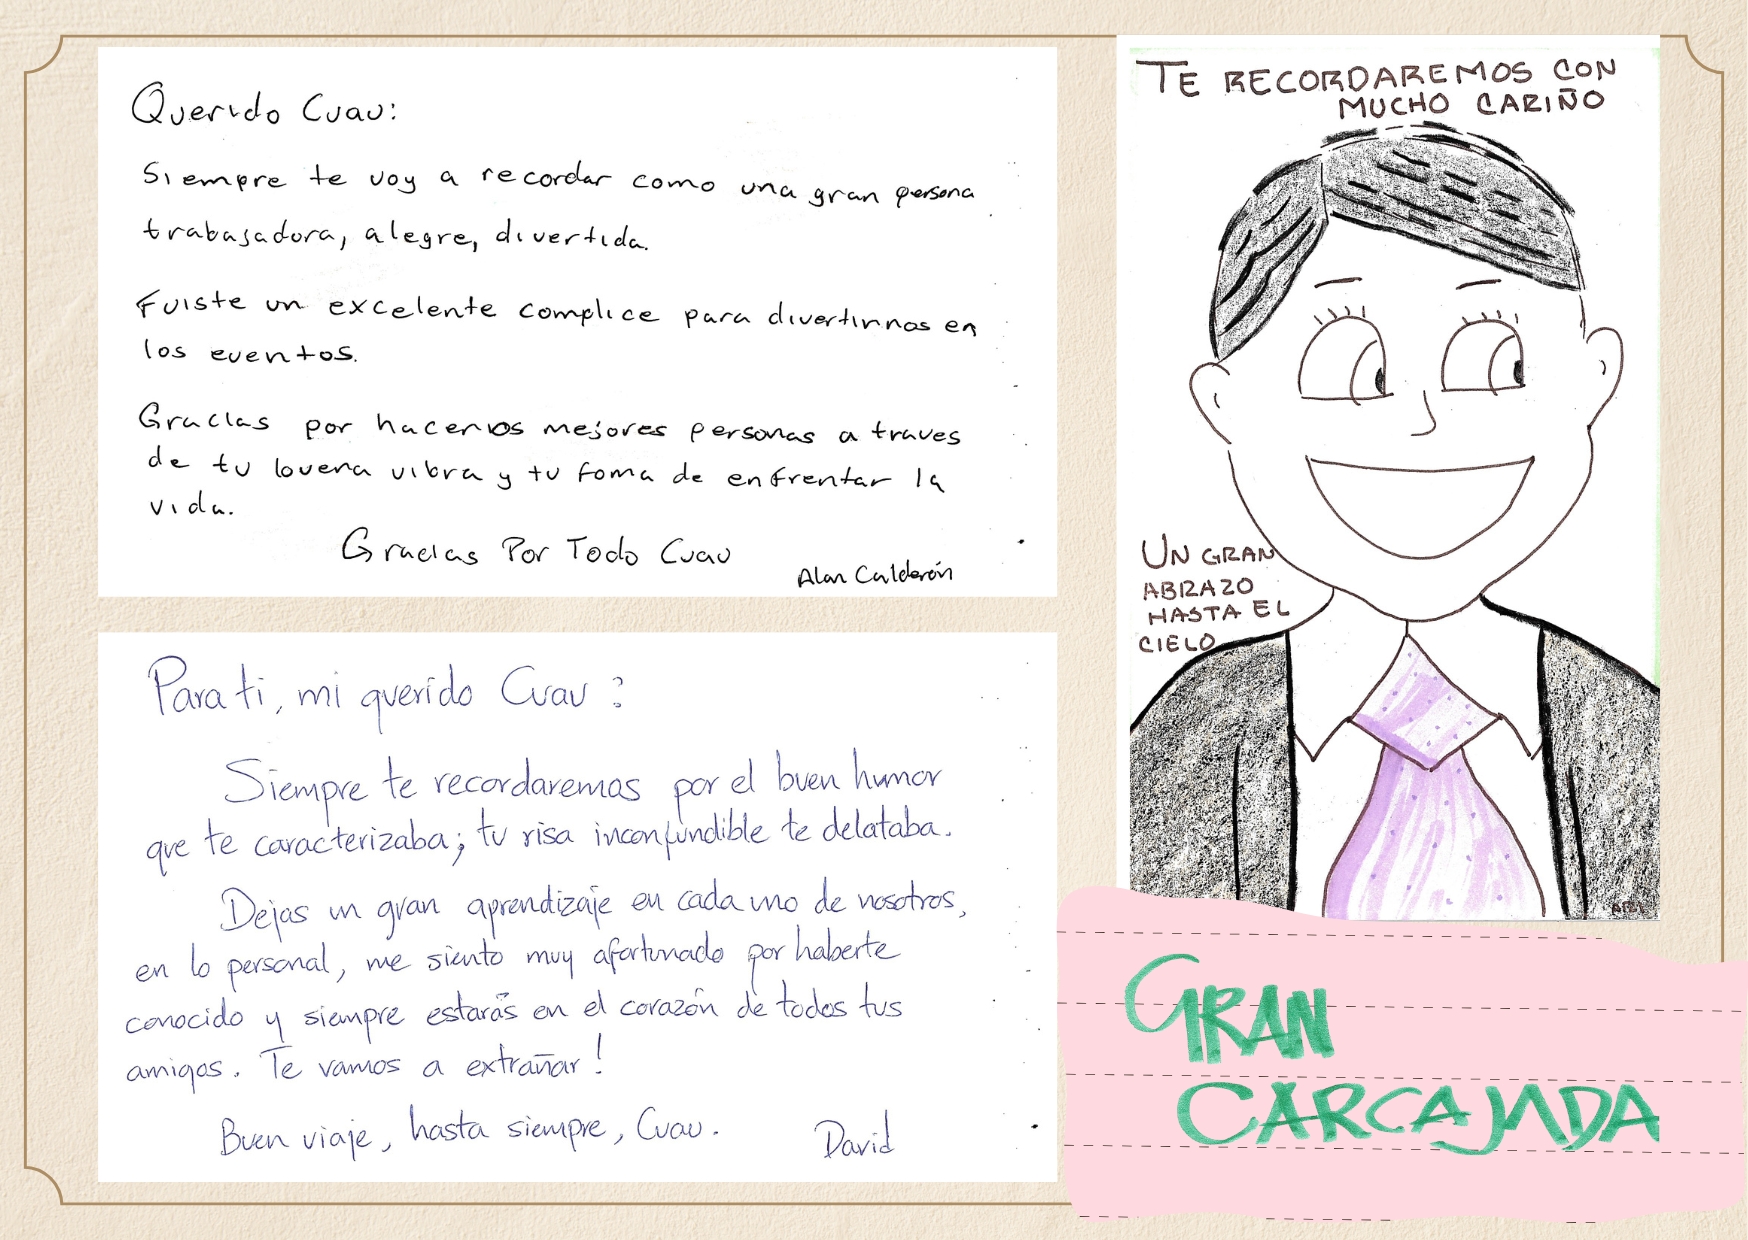 Querido Cuau:
Siempre te voy a recordar como una gran persona
trabajadora, alegre, divertida.
Fuiste un excelente complice para divertirnos en
los eventos.
Gracias por hacernos mejores personas a traves
de tu buena vibra y tu foma de enfrentar la
vida.
Gracias Por Todo Cuau
Alan Calderón
Para ti, mi querido Cuau:
Siempre te recordaremos por el buen humor
que te caracterizaba; tu risa inconfundible te delataba.
Dejas un gran aprendizaje en cada uno de nosotros,
en lo personal, me siento muy afortunado por haberte
conocido y siempre estarás en el corazón de todos tus
amigos. Te vamos a extrañar!
Buen viaje, hasta siempre, Cuau.
David
TE RECORDAREMOS CON
MUCHO CARIÑO
UN GRAN
ABRAZO
HASTA EL
CIELO
GRAN
CARCAJADA